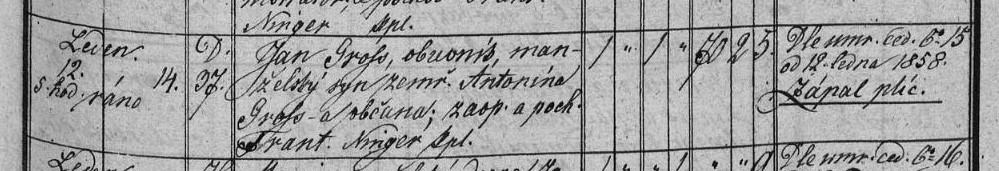 Ninger kpl.
Leden. D. Jan Gross, obuvník, man- 1 " 1 " 70 2 5. Dle umr. ced. č. 15
12. 14. 37. želský syn zemř. Antonína od 12. ledna 1858.
5. hod. ráno Gross-a občana; zaop. a poch. Zápal plic.
Frant. Ninger kpl.
Leden Dle umr. ced. č. 16.